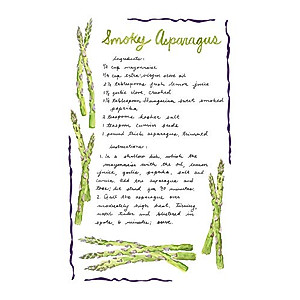 Smoky Asparagus
Ingredients:
cup mayonnaise
cup extra virgin olive oil
tablespoons fresh lemon juice
garlic clove, crushed
tablespoon Hungarian sweet smoked
paprika
2 teaspoons kosher salt
1 teaspoon cumin seeds
1 pound thick asparagus, trimmed
Instructions:
1. In a shallow dish, whisk the
mayonnaise with the oil, lemon
juice, garlic, paprika, salt and
cumin. Add the asparagus and
toss; let stand for 30 minutes.
2. Grill the asparagus over
moderately high heat, turning,
until tender and blistered in
spots, 6 minutes; serve.